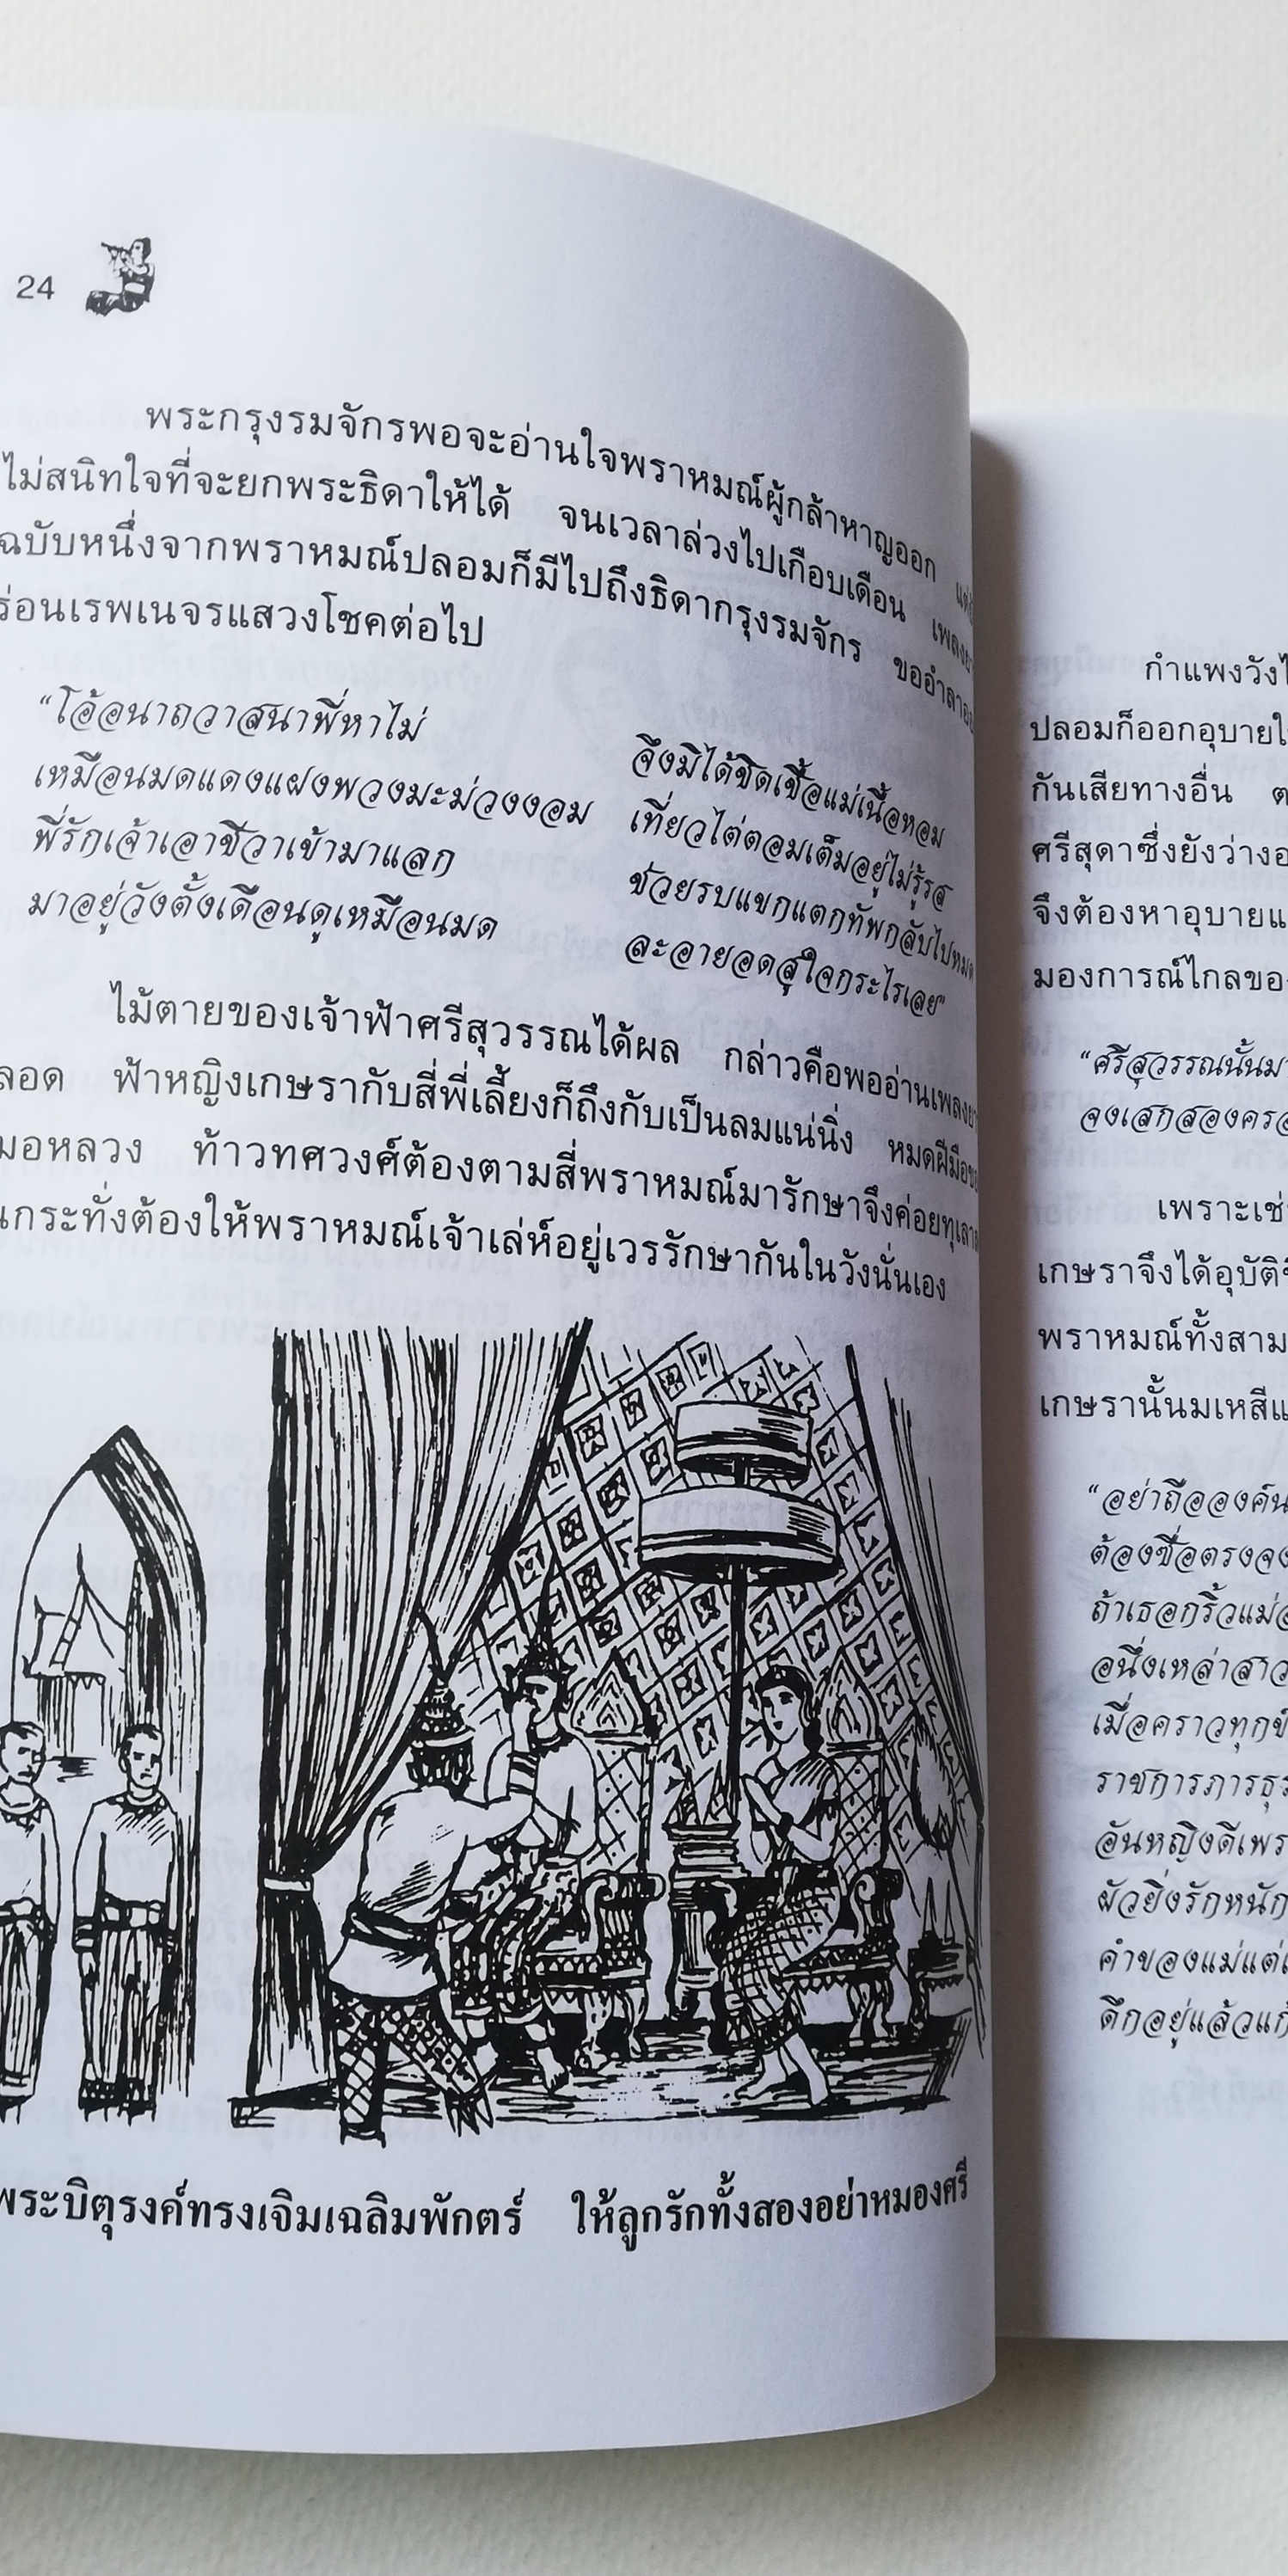 24
พระกรุงรมจักรพอจะอ่านใจพราหมณ์ผู้กล้าหาญออก
ไม่สนิทใจที่จะยกพระธิดาให้ได้ จนเวลาล่วงไปเกือบเดือน
ฉบับหนึ่งจากพราหมณ์ปลอมก็มีไปถึงธิดากรุงรมจักร
ร่อนเรพเนจรแสวงโชคต่อไป
“โอ้อนาถวาสนาพี่หาไม่ จึงมิได้ชิดเชื้อแม่เนื้อหอม
เหมือนมดแดงแฝงพวงมะม่วงงอม เที่ยวไต่ตอมเต็มอยู่ไม่รู้รส
พี่รักเจ้าเอาชีวาเข้ามาแลก ช่วยรบแขกแตกทัพกลับไปหมด
มาอยู่วังตั้งเดือนดูเหมือนมด ละอายอดสูใจกระไรเลย”
ไม้ตายของเจ้าฟ้าศรีสุวรรณได้ผล กล่าวคือพออ่านเพลงยา
ลอด ฟ้าหญิงเกษรากับสี่พี่เลี้ยงก็ถึงกับเป็นลมแน่นิ่ง หมดฝีมือขอ
มอหลวง ท้าวทศวงศ์ต้องตามสี่พราหมณ์มารักษาจึงค่อยทุเลา
นกระทั่งต้องให้พราหมณ์เจ้าเล่ห์อยู่เวรรักษากันในวังนั่นเอง
พระบิตุรงค์ทรงเจิมเฉลิมพักตร์ ให้ลูกรักทั้งสองอย่าหมองศรี
กำแพงวังไ
ปลอมก็ออกอุบายใ
กันเสียทางอื่น ต
ศรีสุดาซึ่งยังว่างอ
จึงต้องหาอุบายแ
มองการณ์ไกลขอ
“ศรีสุวรรณนั้นมา
จงเสกสองครอ
เพราะเช่
เกษราจึงได้อุบัติ
พราหมณ์ทั้งสาม
เกษรานั้นมเหสีแ
“อย่าถือองค์น
ต้องซื่อตรงจง
ถ้าเธอกริ้วแม่อ
อนึ่งเหล่าสาว
เมื่อคราวทุกข์
ราชการภารธุร
อันหญิงดีเพร
ผัวยิ่งรักหนัก
คำของแม่แต่เ
ดึกอยู่แล้วแก